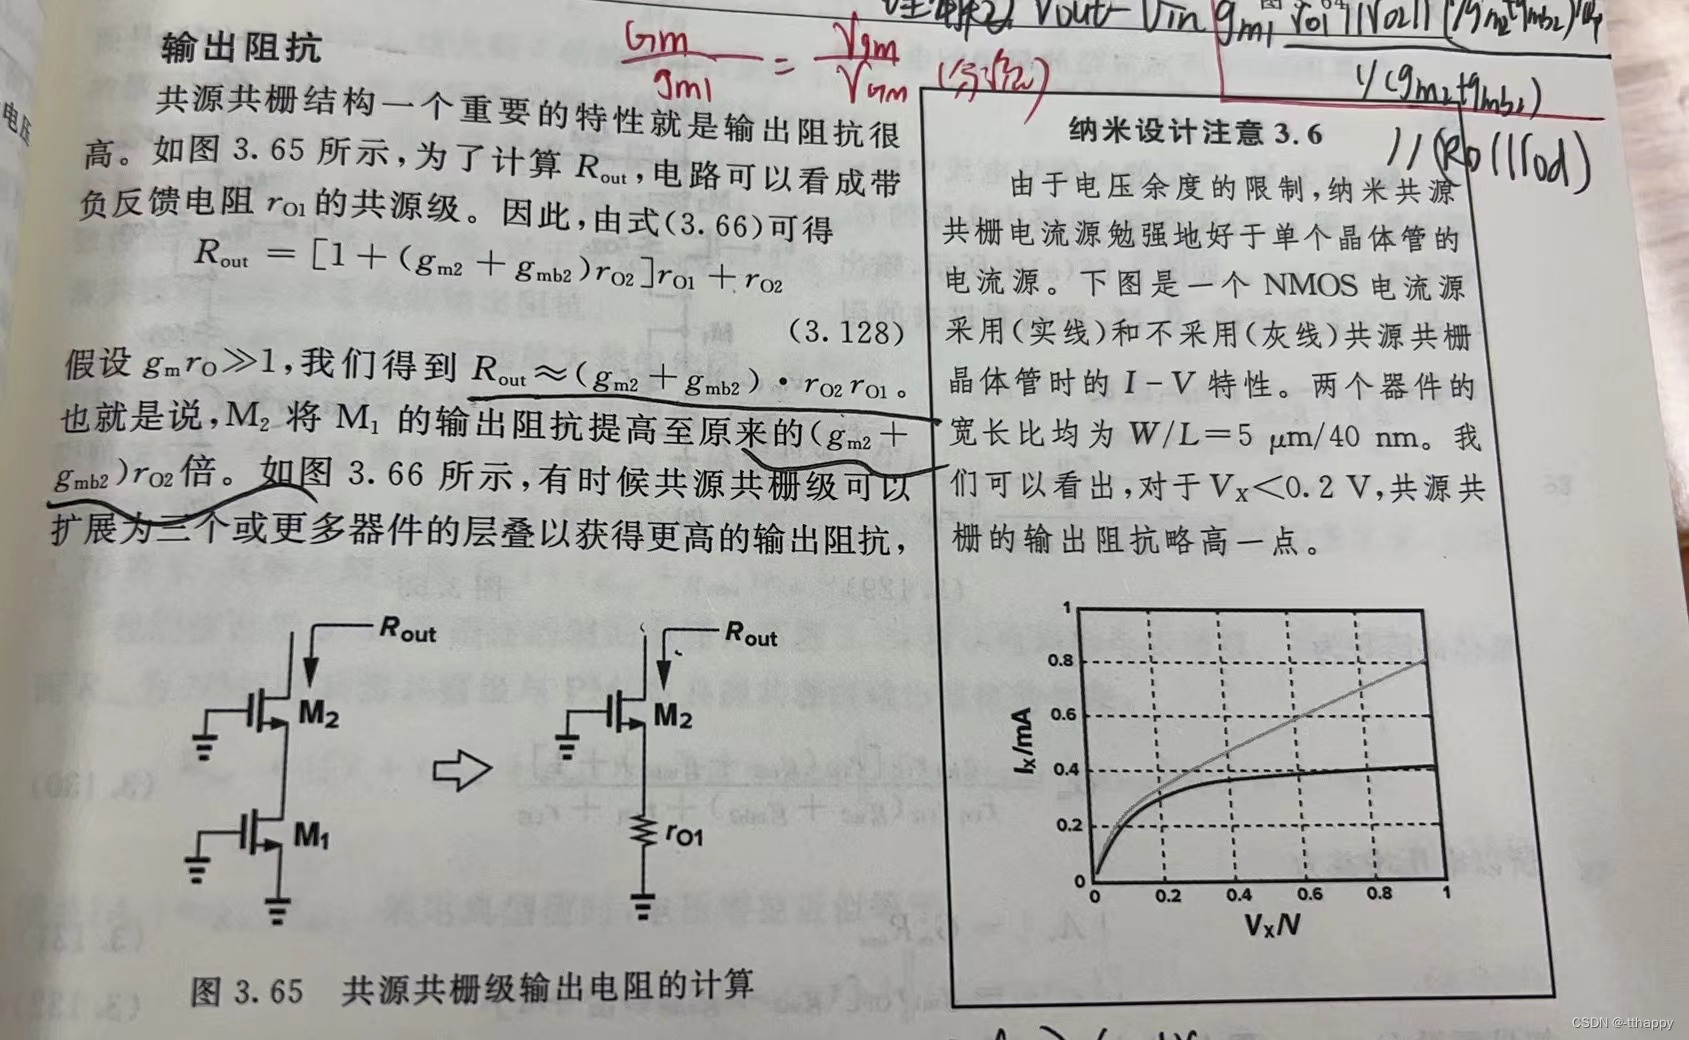 Vout Vin gm1 ro1||ro2||
Gm/gm1 = 
1/(gm2+gmb2)
输出阻抗
共源共栅结构一个重要的特性就是输出阻抗很
高。如图 3.65 所示,为了计算 Rout,电路可以看成带
负反馈电阻 rO1 的共源级。因此,由式(3.66)可得
Rout = [1+(gm2 + gmb2)rO2]rO1 + rO2
(3.128)
假设 gmrO≫1,我们得到 Rout≈(gm2+gmb2)·rO2rO1。
也就是说,M2 将 M1 的输出阻抗提高至原来的(gm2+
gmb2)rO2倍。如图 3.66 所示,有时候共源共栅级可以
扩展为三个或更多器件的层叠以获得更高的输出阻抗,
Rout
M2
M1
Rout
M2
rO1
图 3.65 共源共栅级输出电阻的计算
纳米设计注意 3.6
由于电压余度的限制,纳米共源
共栅电流源勉强地好于单个晶体管的
电流源。下图是一个 NMOS 电流源
采用(实线)和不采用(灰线)共源共栅
晶体管时的 I-V 特性。两个器件的
宽长比均为 W/L=5 μm/40 nm。我
们可以看出,对于 VX<0.2 V,共源共
栅的输出阻抗略高一点。
1
0.8
0.6
0.4
0.2
0
IX/mA
0 0.2 0.4 0.6 0.8 1
VX/V
CSDN @-tthappy